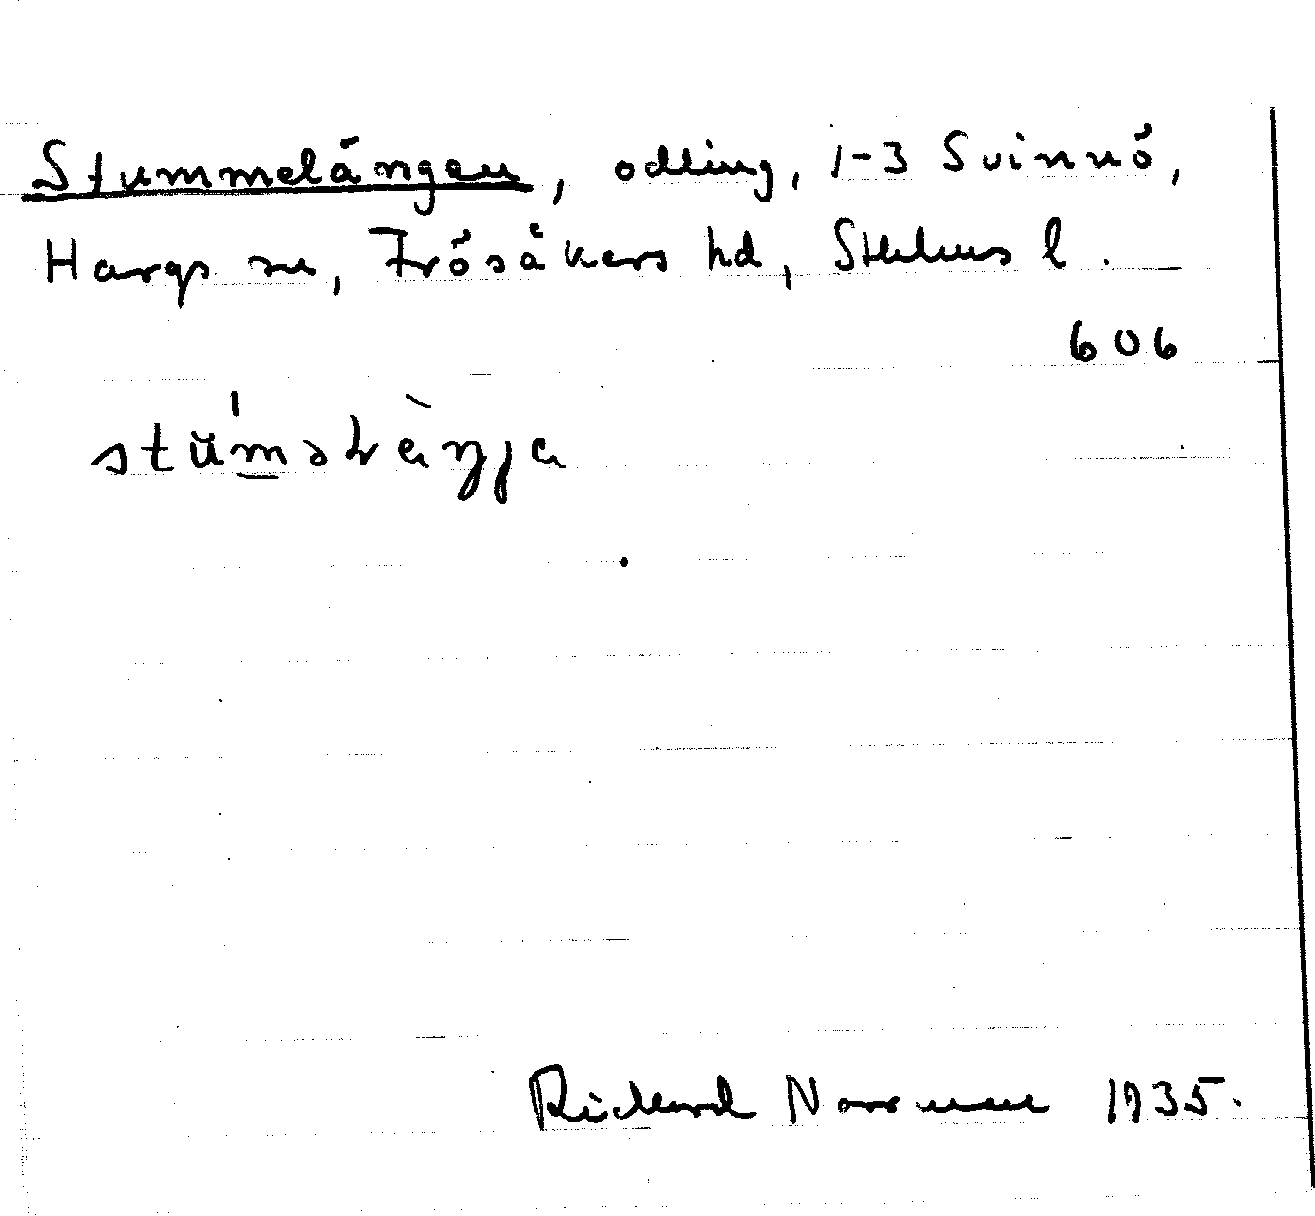 Stummelängen, odling, 1-3 Svinnö,
Hargs sn, Frösåkers hd, Sthlms l.
606
Rickard Norrman 1935.